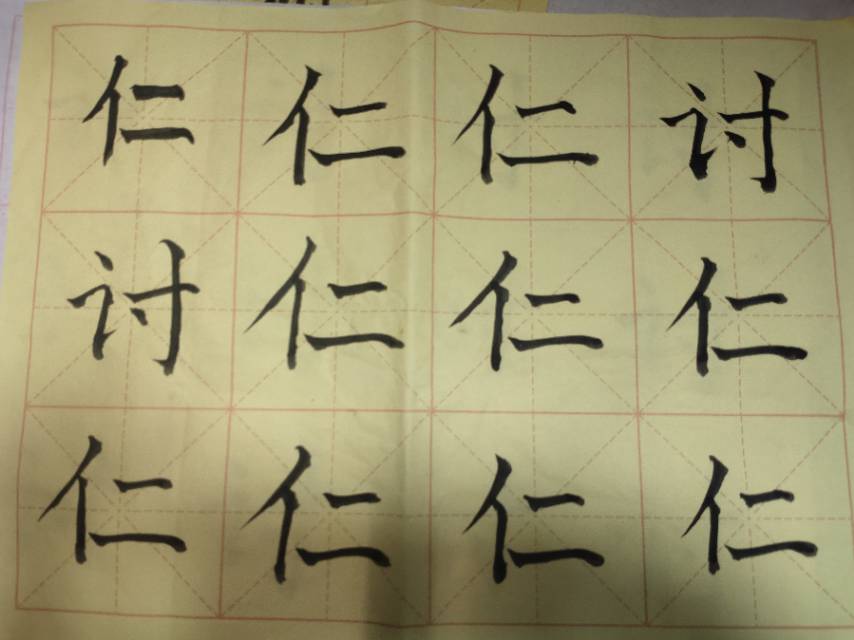 仁仁仁讨
讨仁仁仁
仁仁仁仁